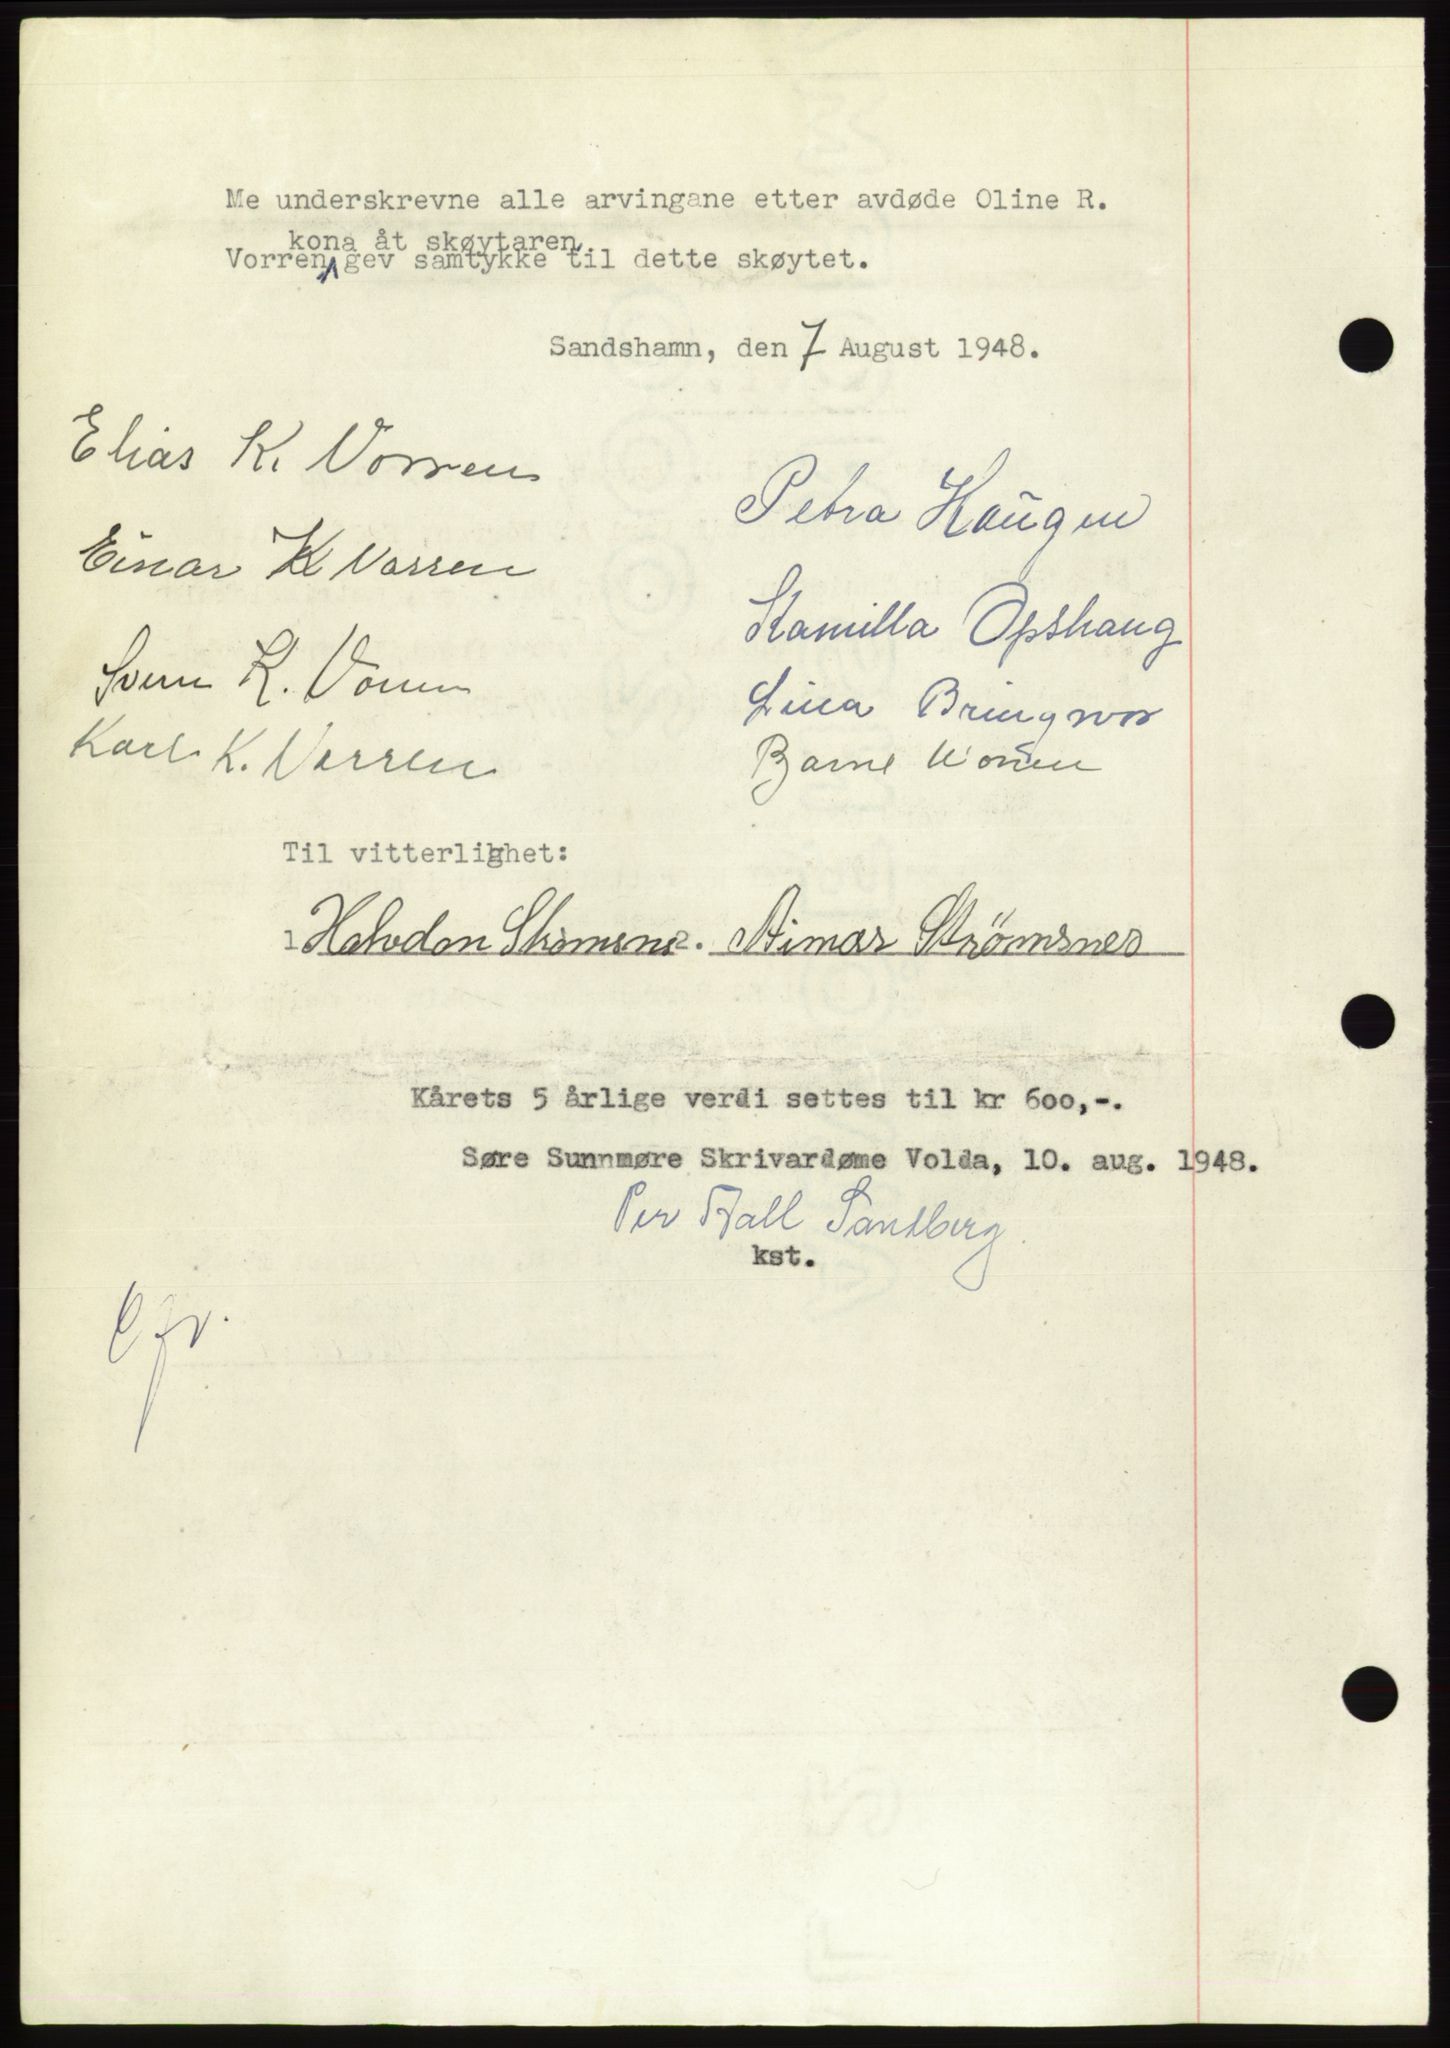 Me underskrevne alle arvingane etter avdøde Oline R.
kona åt skøytaren
Vorren, gev samtykke til dette skøytet.
Sandshamn, den 7 August 1948.
Elias K. Vorren
Petra Haugen
Einar K Vorren
Kamilla Opshaug
Svein K. Vorren
Lina Bringsvor
Karl K. Vorren
Bjarne Vorren
Til vitterlighet:
1 Halvdan 2. Aimar Strömsnes
Kårets 5 årlige verdi settes til kr 600,-.
Søre Sunnmøre Skrivardøme Volda, 10. aug. 1948.
Per Fall Sandberg
kst.